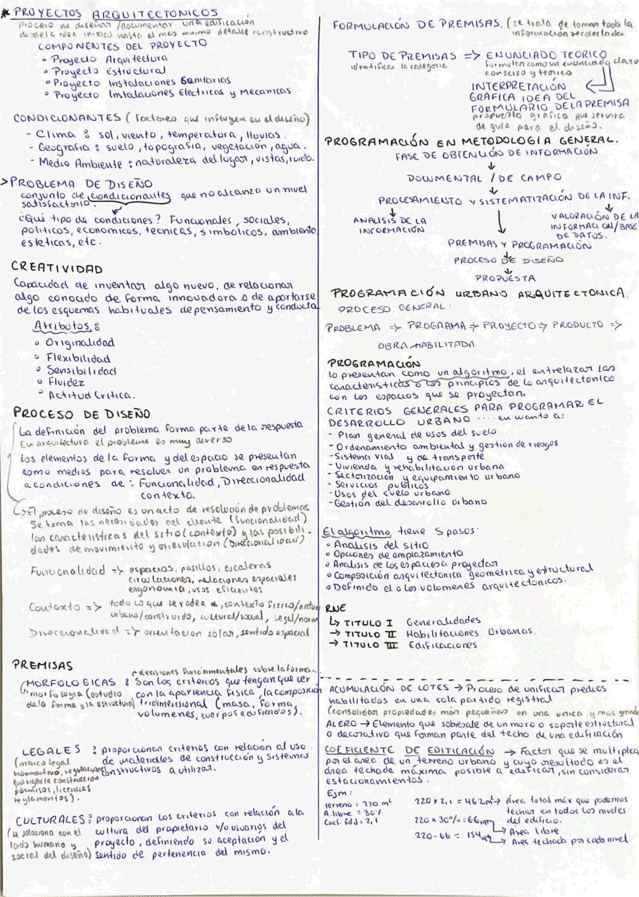 * PROYECTOS ARQUITECTONICOS
Proceso de diseñar/documentar una edificación
desde la idea inicial hasta el más mínimo detalle constructivo
COMPONENTES DEL PROYECTO
° Proyecto Arquitectura
° Proyecto Estructural
° Proyecto Instalaciones Sanitarias
° Proyecto Instalaciones Electricas y Mecanicas
CONDICIONANTES (factores que influyen en el diseño)
- Clima : sol, viento, temperatura, lluvias.
- Geografia : suelo, topografia, vegetación, agua.
- Medio Ambiente : naturaleza del lugar, vistas, ruido.
> PROBLEMA DE DISEÑO
conjunto de condicionantes que no alcanza un nivel
satisfactorio.
¿Qué tipo de condiciones? Funcionales, sociales,
politicos, economicos, tecnicas, simbolicos, ambiente,
esteticas, etc.
CREATIVIDAD
Capacidad de inventar algo nuevo, de relacionar
algo conocido de forma innovadora o de apartarse
de los esquemas habituales de pensamiento y conducta
Atributos :
° Originalidad
° Flexibilidad
° Sensibilidad
° Fluidez
° Actitud Critica.
PROCESO DE DISEÑO
La definición del problema forma parte de la respuesta
En arquitectura el problema es muy diverso
Los elementos de la Forma y del espacio se presentan
como medios para resolver un problema en respuesta
a condiciones de : Funcionalidad, Direccionalidad
contexto.
El proceso de diseño es un acto de resolución de problemas.
Se toma las necesidades del cliente (funcionalidad)
las características del sitio (contexto) y las posibili-
dades de movimiento y orientación (Direccionalidad)
Funcionalidad => espacios, pasillos, escaleras
circulaciones, relaciones espaciales
ergonomia, usos eficientes
Contexto => todo lo que se rodea
urbano/construido, cultural/social, legal/norm
Direccionalidad => orientacion solar, sentido espacial
PREMISAS
decisiones fundamentales sobre la forma
MORFOLOGICAS : Son los criterios que tengan que ver
(morfologia (estudio con la apariencia fisica, la composición
de la forma y la estructura) tridimensional (masa, forma,
volumenes, cuerpos edificados).
LEGALES : proporcionan criterios con relación al uso
(marco legal de materiales de construcción y sistemas
normativo, regulaciones constructivos a utilizar.
que rige la construccion
permisos, licencias
reglamentos).
CULTURALES : proporcionan los criterios con relación a la
(se relaciona con el cultura del propietario y/o usuarios del
lado humano y proyecto, definiendo su aceptación y el
social del diseño) sentido de pertenencia del mismo.
FORMULACIÓN DE PREMISAS. (se trata de tomar toda la
información recolectada
TIPO DE PREMISAS => ENUNCIADO TEORICO
identificar la categoria formulen como un enunciado claro
consciso y teorico
INTERPRETACIÓN
GRAFICA IDEA DEL
FORMULARIO DE LA PREMISA
propuesta grafica que servira
de guia para el diseño.
PROGRAMACIÓN EN METODOLOGÍA GENERAL.
FASE DE OBTENCIÓN DE INFORMACIÓN
↓
DOCUMENTAL / DE CAMPO
↓
PROCESAMIENTO Y SISTEMATIZACIÓN DE LA INF.
ANALISIS DE LA
INFORMACIÓN
VALORACIÓN DE LA
INFORMACION/BASE
DE DATOS.
PREMISAS Y PROGRAMACIÓN
↓
PROCESO DE DISEÑO
↓
PROPUESTA
PROGRAMACIÓN URBANO ARQUITECTÓNICA.
PROCESO GENERAL:
PROBLEMA => PROGRAMA => PROYECTO => PRODUCTO =>
OBRA HABILITADA
PROGRAMACIÓN
lo presentan como un algoritmo, el entrelazar las
características o los principios de lo arquitectonico
con los espacios que se proyectan.
CRITERIOS GENERALES PARA PROGRAMAR EL
DESARROLLO URBANO .... en cuanto a:
- Plan general de usos del suelo
- Ordenamiento ambiental y gestión de riesgos
- Sistema vial y de transporte
- Vivienda y rehabilitacion urbana
- Sectorización y equipamiento urbano
- Servicios publicos
- Usos del suelo urbano
- Gestión del desarrollo urbano
El algoritmo, tiene 5 pasos:
° Analisis del sitio
° Opciones de emplazamiento
° Analisis de los espacios a proyectar
° Composición arquitectonica geometrica y estructural
° Definido el o los volumenes arquitectonicos.
RNE
↳ TITULO I Generalidades
→ TITULO II Habilitaciones Urbanas
→ TITULO III Edificaciones
ACUMULACIÓN DE LOTES → Proceso de unificar predios
habilitados en una sola partida registral
(consolidan propiedades más pequeñas en una unica y mas grande
ALERO → Elemento que sobresale de un muro o soporte estructural
o decorativo que forman parte del techo de una edificación
COEFICIENTE DE EDIFICACIÓN → Factor que se multiplica
por el area de un terreno urbano y cuyo resultado es el
área techada máxima posible a edificar, sin considerar
estacionamientos.
Ejm:
terreno = 220 m²
A. libre = 30%
Coef. Edd = 2,1
220 x 2,1 = 462 m² → Área total máx que podemos
techar en todos los niveles
del edificio.
220 x 30% = 66 m² → Area libre
220 - 66 = 154 m² → Area techada por cada nivel